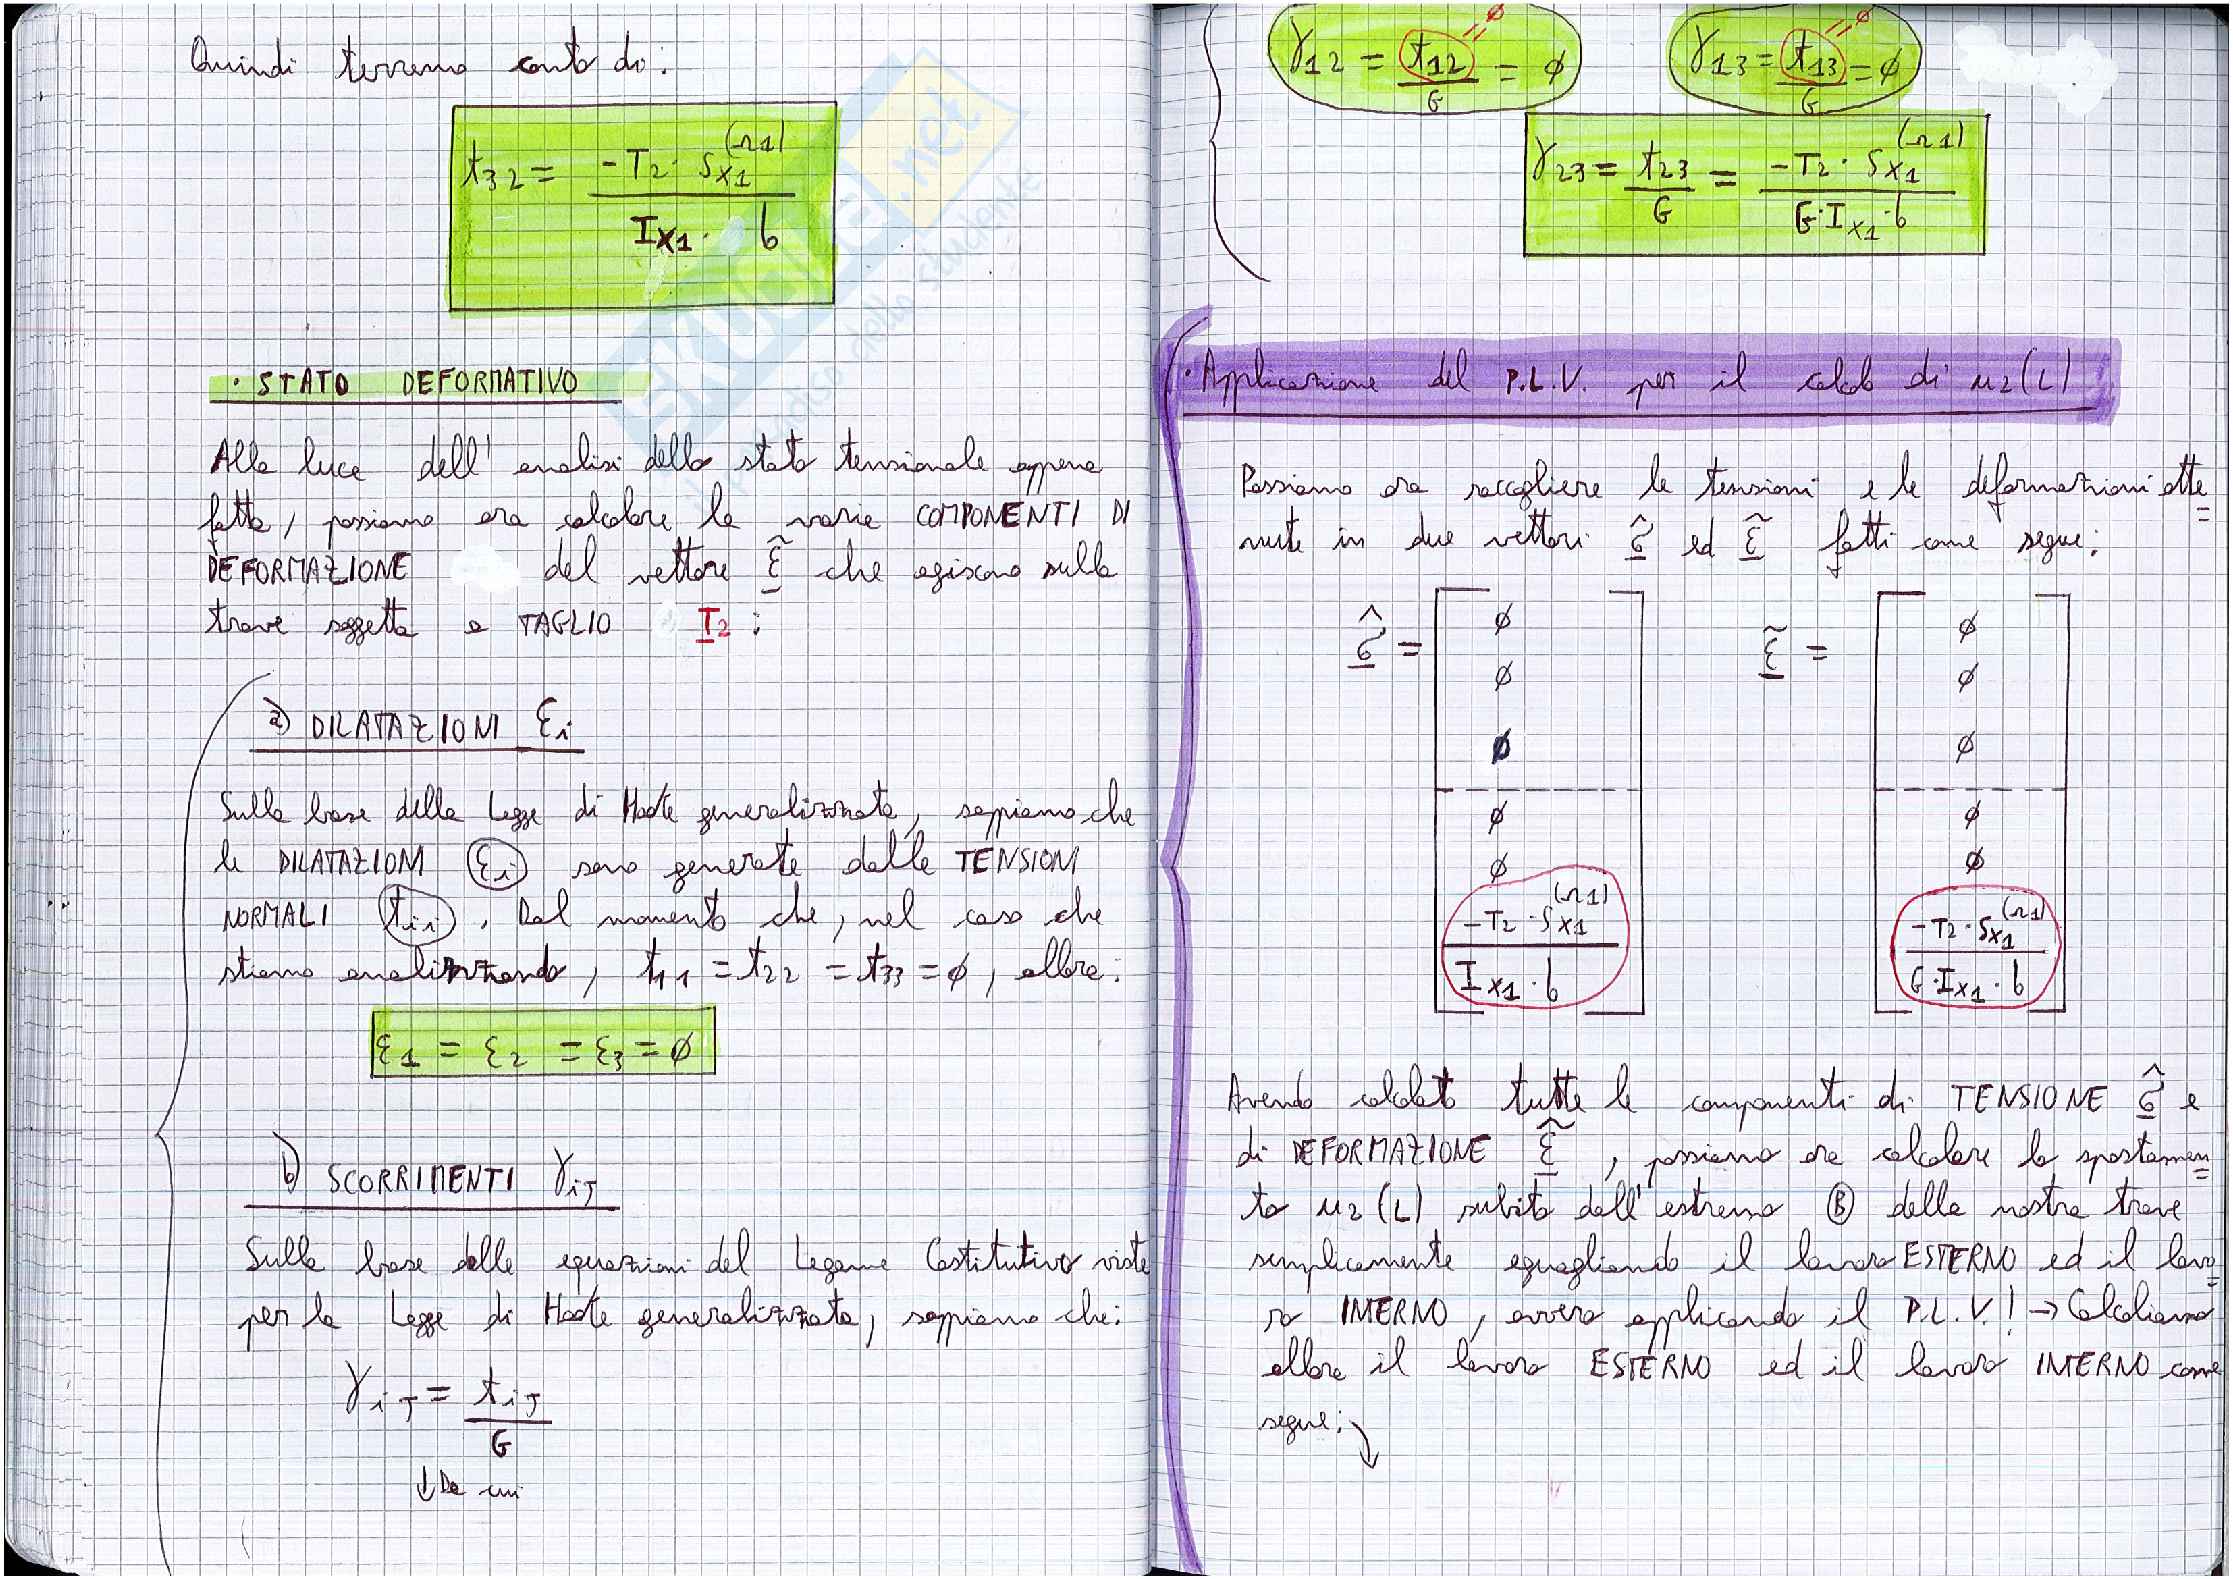 Quindi terremo conto di:
t32 = -T2 · Sx1^(Ω1) / Ix1 · b
· STATO DEFORMATIVO
Alla luce dell'analisi dello stato tensionale appena
fatta, possiamo ora calcolare le varie COMPONENTI DI
DEFORMAZIONE del vettore ε̃ che agiscono sulla
trave soggetta a TAGLIO T2 :
a) DILATAZIONI εi
Sulla base della Legge di Hooke generalizzata, sappiamo che
le DILATAZIONI εi sono generate dalle TENSIONI
NORMALI tii . Dal momento che, nel caso che
stiamo analizzando, t11 = t22 = t33 = ø, allora:
ε1 = ε2 = ε3 = ø
b) SCORRIMENTI γiJ
Sulla base delle equazioni del Legame Costitutivo viste
per la Legge di Hooke generalizzata, sappiamo che:
γiJ = tiJ / G
↓ Da cui
γ12 = t12 / G = ø   γ13 = t13 / G = ø
= ø   = ø
γ23 = t23 / G = -T2 · Sx1^(Ω1) / G · Ix1 · b
· Applicazione del P.L.V. per il calcolo di u2(L)
Possiamo ora raccogliere le tensioni e le deformazioni otte=
nute in due vettori σ̂ ed ε̃ fatti come segue:
σ̂ = [ ø ø ø ø ø -T2 · Sx1^(Ω1) / Ix1 · b ]   ε̃ = [ ø ø ø ø ø -T2 · Sx1^(Ω1) / G · Ix1 · b ]
Avendo calcolato tutte le componenti di TENSIONE σ̂ e
di DEFORMAZIONE ε̃ , possiamo ora calcolare lo spostamen=
to u2(L) subito dall'estremo B della nostra trave
semplicemente eguagliando il lavoro ESTERNO ed il lavo=
ro INTERNO, ovvero applicando il P.L.V.! → Calcoliamo
allora il lavoro ESTERNO ed il lavoro INTERNO come
segue: ↘
SKUOLA.net
dello studente